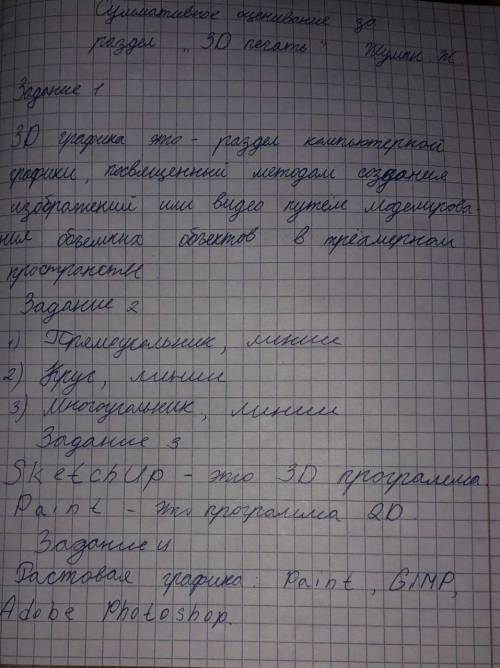 Суммативное оценивание за
раздел "3D печать" Жуман Ж
Задание 1
3D графика это - раздел компьютерной
графики, посвященный методам создания
изображений или видео путем моделирова-
ния объемных объектов в трёхмерном
пространстве
Задание 2
1) Прямоугольник, линии
2) Круг, линии
3) Многоугольник, линии
Задание 3
SketchUp - это 3D программа
Paint - это программа 2D
Задание 4
Растовая графика: Paint, GIMP,
Adobe Photoshop.